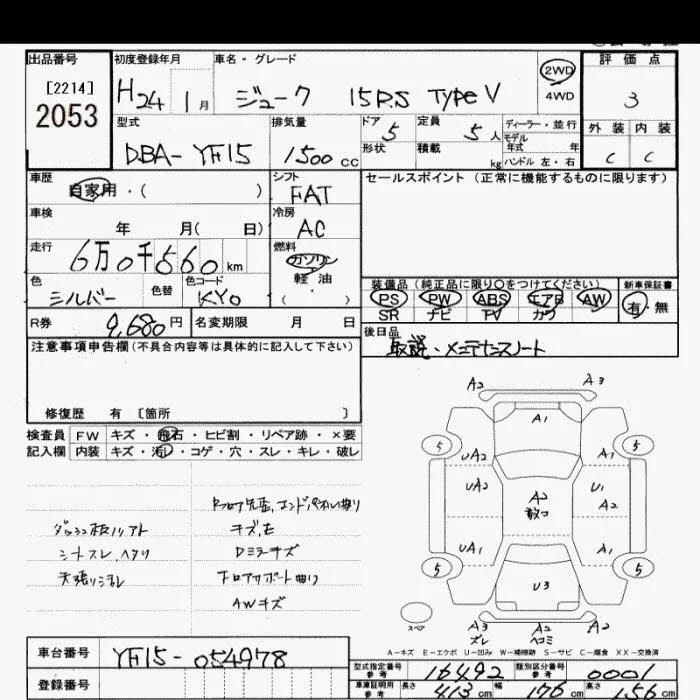 出品番号
[2214]
2053
初度登録年月
H24 1月
車名・グレード
ジューク 15RS TypeV
2WD
4WD
評価点
3
外装 内装
C C
型式
DBA-YF15
排気量
1500 CC
ドア 5
形状
定員 5人
積載 kg
ディーラー・並行
モデル
年式 年
ハンドル 左・右
車歴
自家用・( )
シフト
FAT
セールスポイント(正常に機能するものに限ります)
車検
年 月( 日)
冷房
AC
走行
6万0千560km
燃料
ガソリン
軽油
( ・ )
色
シルバー
色替
色コード
KY0
装備品(純正品に限り〇をつけてください)
PS PW ABS エアB AW
SR ナビ TV カワ
新車保証書
有 無
R券 9,680円
名変期限 月 日
後日品
取説・メンテナンスノート
注意事項申告欄(不具合内容等は具体的に記入して下さい)
修復歴 有 〔箇所 〕
検査員
記入欄
FW キズ・飛石・ヒビ割・リペア跡・×要
内装 キズ・汚レ・コゲ・穴・スレ・キレ・破レ
キズ,モ
ダッシュ板ノリアト
Dミラーキズ
シートスレ,ヘタリ
天張リヨゴレ
フロアサポート曲り
AWキズ
A2 A3
A1
5 5
UA2 A1
UA2 U1
A2
A2
UA1 A1
5 5
U3
スペア
A3 A2 A2
ズレ ヘコミ
A-キズ E-エクボ U-凹み W-補修跡 S-サビ C-腐食 XX-交換済
車台番号
YF15-054978
登録番号
型式指定番号
参考
16492
類別区分番号
参考
0001
車庫証明用
参考
長さ 413 cm
幅 176 cm
高さ 156 cm